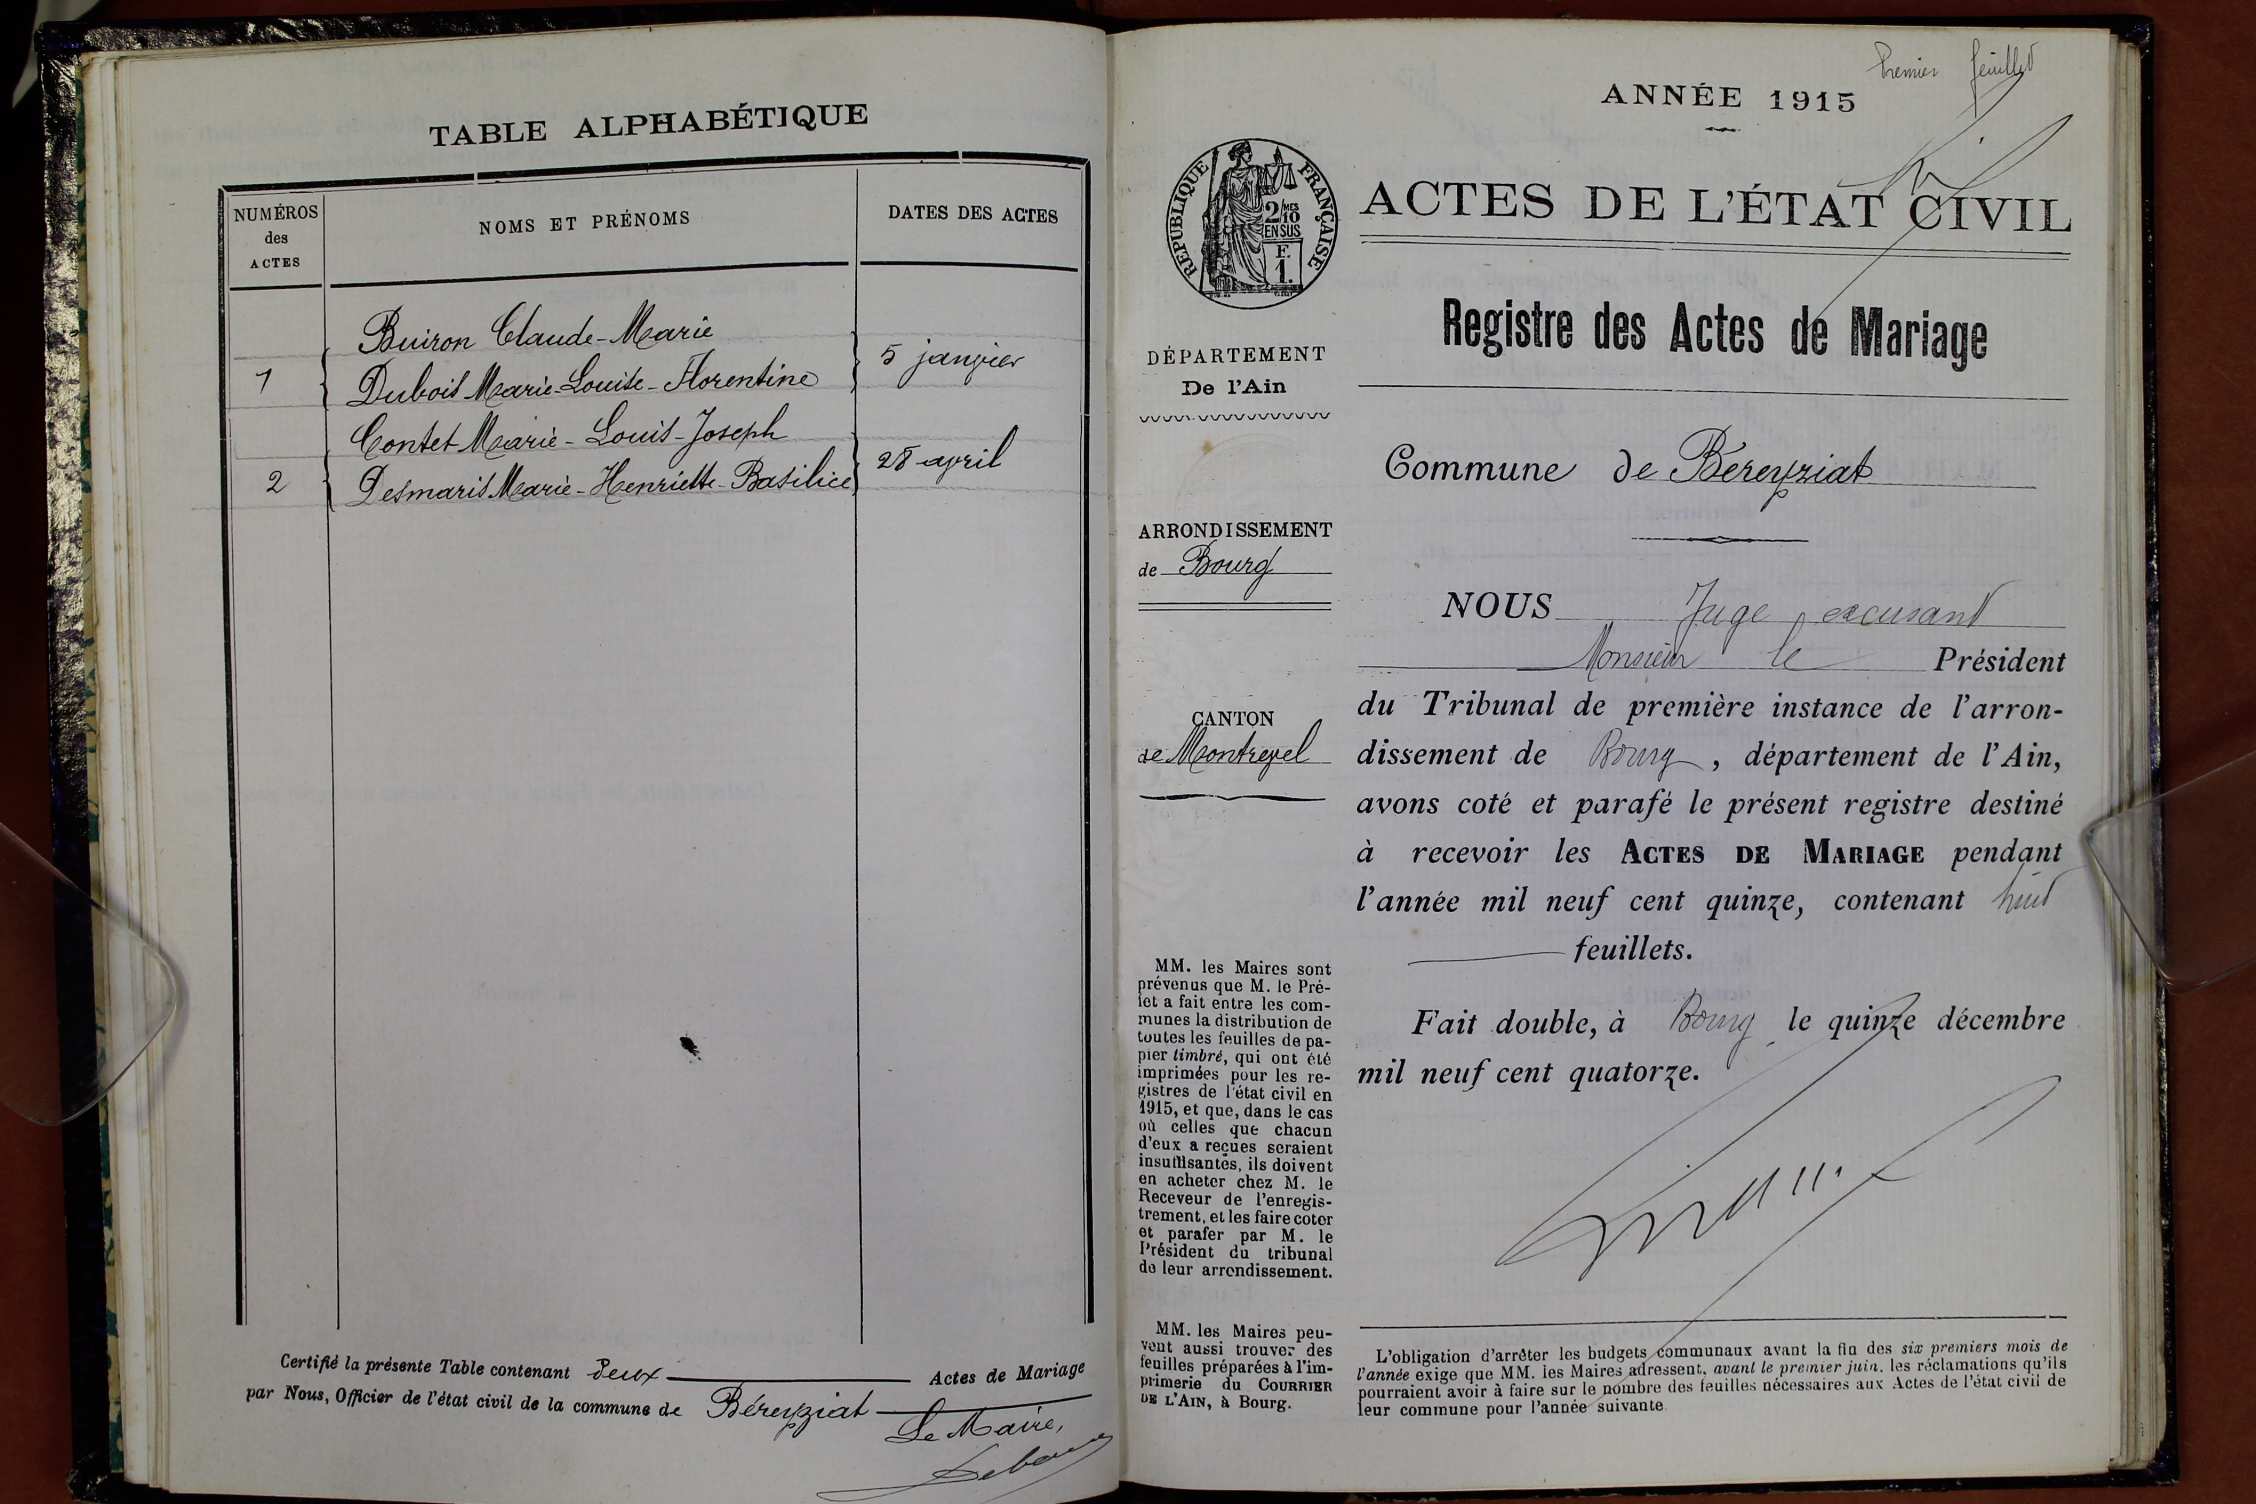 TABLE ALPHABÉTIQUE
NUMÉROS
des
ACTES
NOMS ET PRÉNOMS
DATES DES ACTES
Buiron Claude-Marie
1
Dubois Marie-Louise-Florentine
5 janvier
Contet Marie-Louis-Joseph
2
Desmaris Marie-Henriette-Basilice
28 avril
Certifié la présente Table contenant deux Actes de Mariage
par Nous, Officier de l'état civil de la commune de Béreyziat
Le Maire,
Premier feuillet
ANNÉE 1915
RÉPUBLIQUE FRANÇAISE
2/10 MES
EN SUS
F.
1.
ACTES DE L'ÉTAT CIVIL
Registre des Actes de Mariage
DÉPARTEMENT
De l'Ain
Commune de Béreyziat
ARRONDISSEMENT
de Bourg
CANTON
de Montrevel
NOUS Juge excusant
Monsieur le Président
du Tribunal de première instance de l'arron-
dissement de Bourg, département de l'Ain,
avons coté et parafé le présent registre destiné
à recevoir les ACTES DE MARIAGE pendant
l'année mil neuf cent quinze, contenant huit
feuillets.
Fait double, à Bourg le quinze décembre
mil neuf cent quatorze.
MM. les Maires sont
prévenus que M. le Pré-
fet a fait entre les com-
munes la distribution de
toutes les feuilles de pa-
pier timbré, qui ont été
imprimées pour les re-
gistres de l'état civil en
1915, et que, dans le cas
où celles que chacun
d'eux a reçues seraient
insuffisantes, ils doivent
en acheter chez M. le
Receveur de l'enregis-
trement, et les faire coter
et parafer par M. le
Président du tribunal
de leur arrondissement.
MM. les Maires peu-
vent aussi trouver des
feuilles préparées à l'im-
primerie du COURRIER
DE L'AIN, à Bourg.
L'obligation d'arrêter les budgets communaux avant la fin des six premiers mois de
l'année exige que MM. les Maires adressent, avant le premier juin, les réclamations qu'ils
pourraient avoir à faire sur le nombre des feuilles nécessaires aux Actes de l'état civil de
leur commune pour l'année suivante.